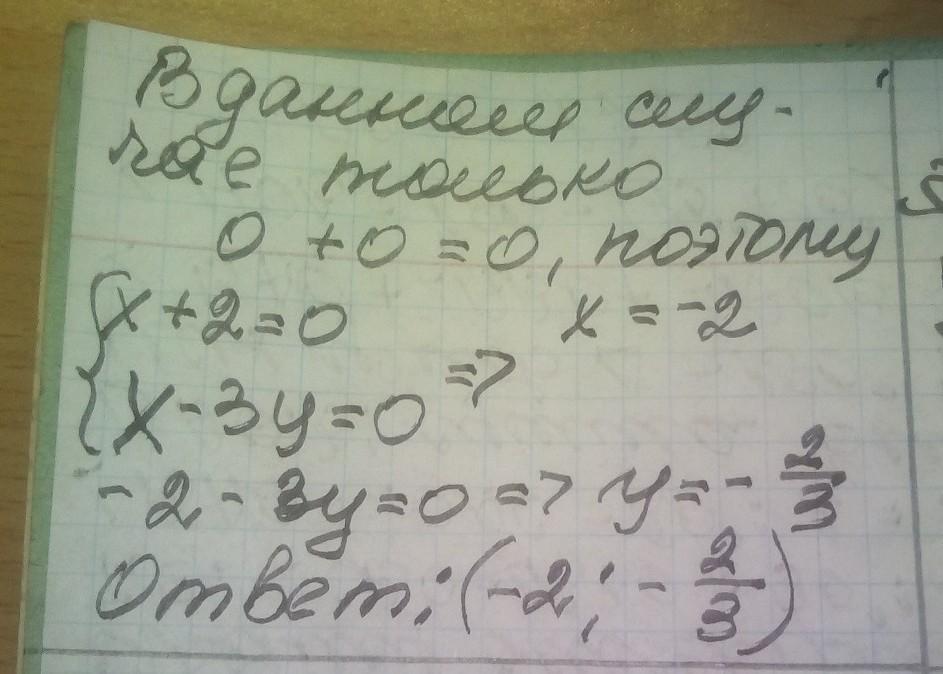 В данном слу-
чае только
0 + 0 = 0, поэтому
{x + 2 = 0 x = -2
{x - 3y = 0 =>
-2 - 3y = 0 => y = - 2/3
Ответ: (-2; - 2/3)